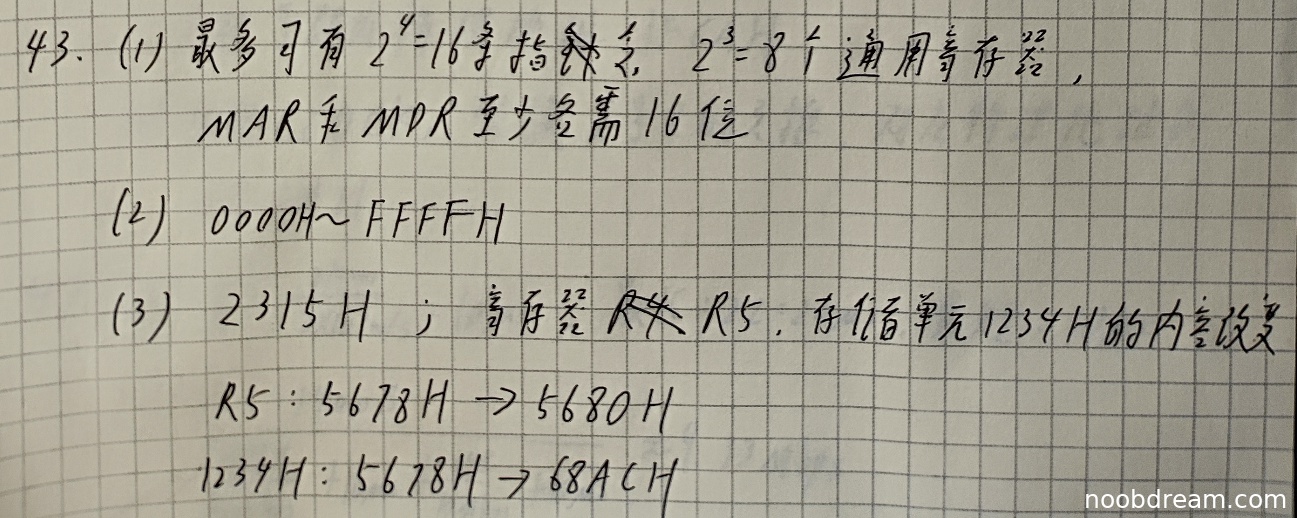 43. (1) 最多可有 2^4=16条指令, 2^3=8个通用寄存器,
MAR和MDR至少各需16位
(2) 0000H~FFFFH
(3) 2315H ; 寄存器 R5. 存储单元1234H的内容改变
R5: 5678H → 5680H
1234H: 5678H → 68ACH
noobdream.com